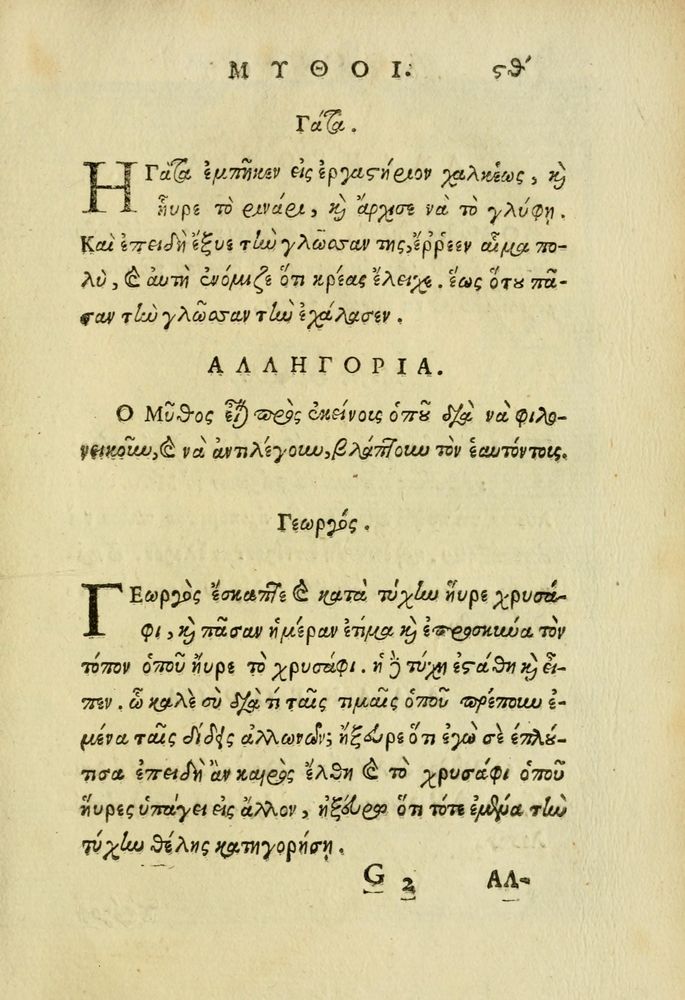 ΜΥΘΟΙ. ϛθʹ
Γάτα.
Η Γάτα ἐμπῆκεν εἰς ἐργαστήριον χαλκέως, καὶ
ἦυρε τὸ ρινάρι, καὶ ἄρχισε νὰ τὸ γλύφῃ.
Καὶ ἐπειδὴ ἔξυε τὴν γλῶσσαν της, ἔῤῥεεν αἷμα πο-
λὺ, καὶ ἀυτὴ ἐνόμιζε ὅτι κρέας ἔλειχε. ἕως ὅτου πᾶ-
σαν τὴν γλῶσσαν τὴν ἐχάλασεν.
ΑΛΛΗΓΟΡΙΑ.
Ο Μῦθος εἶναι πρὸς ἐκείνοις ὁποῦ διὰ νὰ φιλο-
νεικοῦν, καὶ νὰ ἀντιλέγουν, βλάπτουν τὸν ἑαυτόντοις.
Γεωργός.
ΓΕωργὸς ἔσκαπτε καὶ κατὰ τύχην ἦυρε χρυσά-
φι, καὶ πᾶσαν ἡμέραν ἐτίμα καὶ ἐπροσκύνα τὸν
τόπον ὁποῦ ἦυρε τὸ χρυσάφι. ἡ δὲ τύχη ἐστάθη καὶ εἶ-
πεν. ὦ καλὲ σὺ διὰ τί ταῖς τιμαῖς ὁποῦ πρέπουν ἐ-
μένα ταῖς δίδεις ἀλλωνῶν; ἤξευρε ὅτι ἐγὼ σὲ ἐπλού-
τισα ἐπειδὴ ἂν καιρὸς ἔλθη καὶ τὸ χρυσάφι ὁποῦ
ἥυρες ὑπάγει εἰς ἄλλον, ἠξεύρω ὅτι τότε ἐμένα τὴν
τύχην θέλης κατηγορήσῃ.
G 2 ΑΛ-